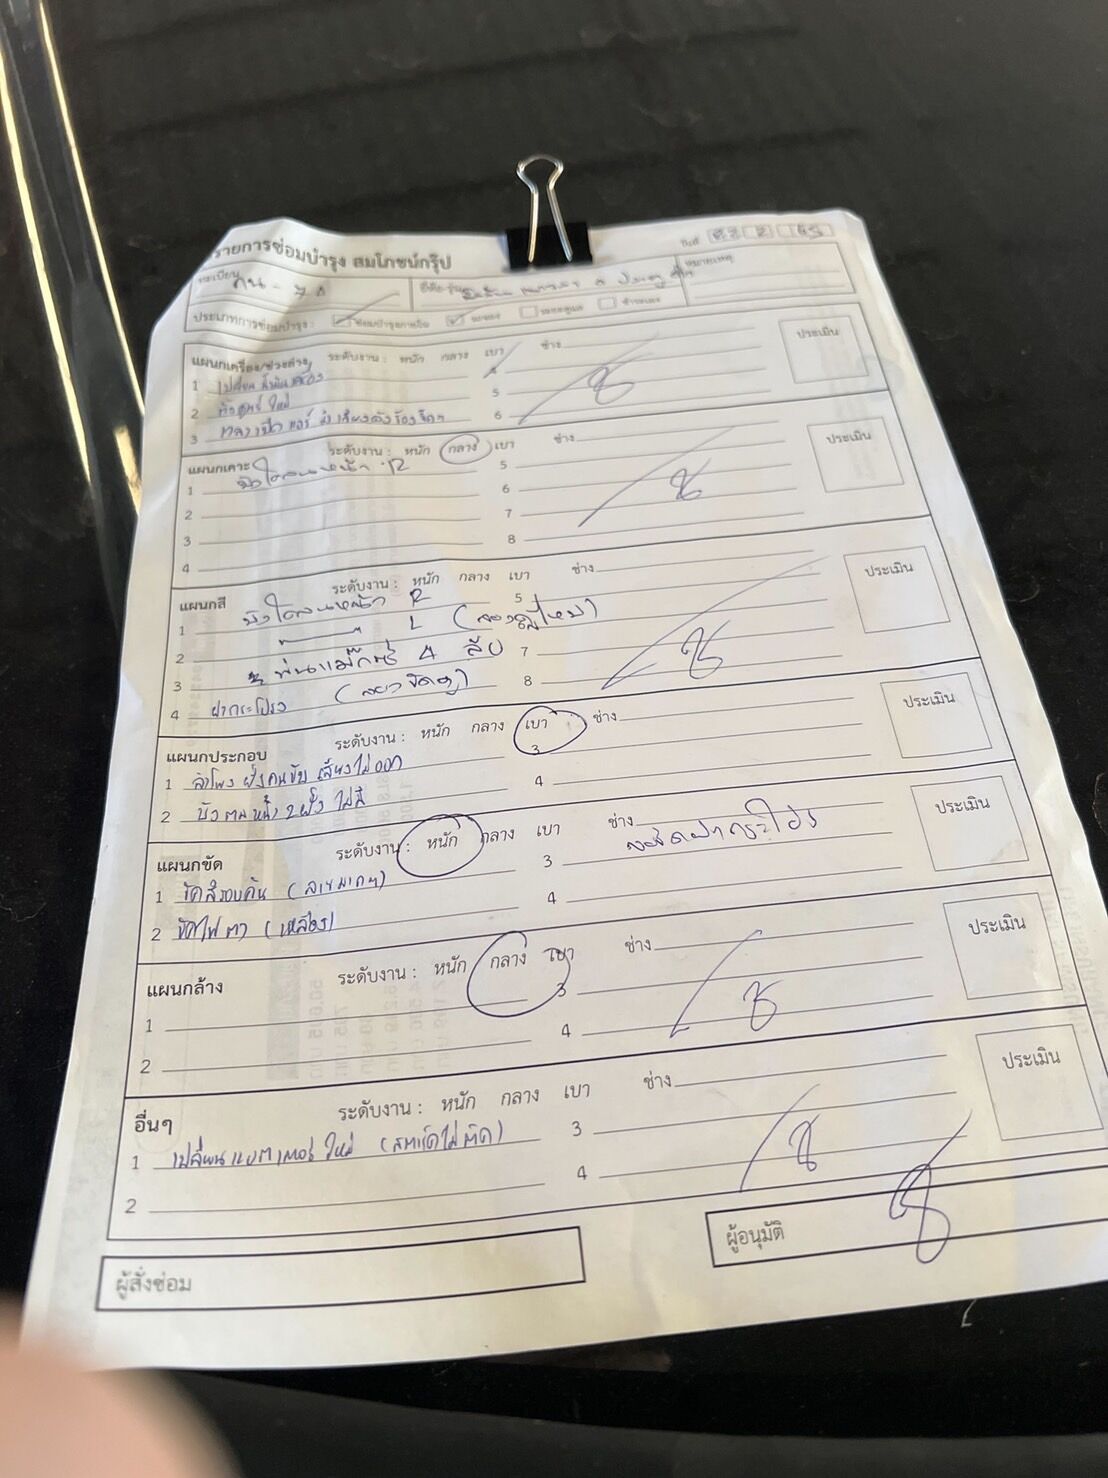 รายการซ่อมบำรุง สมโภชน์กรุ๊ป
วันที่
ทะเบียน กน - ยี่ห้อ/รุ่น หมายเหตุ
ประเภทการซ่อมบำรุง :
แผนกเครื่อง/ช่วงล่าง ระดับงาน : หนัก กลาง เบา ช่าง ประเมิน
1 เปลี่ยน น้ำมันเครื่อง 4
2 ใหม่ 5
3 แอร์ 6
แผนกเคาะ ระดับงาน : หนัก กลาง เบา ช่าง ประเมิน
1 บังโคลนหน้า R 5
2 6
3 7
4 8
แผนกสี ระดับงาน : หนัก กลาง เบา ช่าง ประเมิน
1 บังโคลนหน้า R 5
2 L
3 พ่นแม็กซ์ 4 ล้อ 7
4 ฝากระโปรง (ลองขัดดู) 8
แผนกประกอบ ระดับงาน : หนัก กลาง เบา ช่าง ประเมิน
1 ลำโพง ฝั่งคนขับ เสียงไม่ออก 3
2 ไม่มี 4
แผนกขัด ระดับงาน : หนัก กลาง เบา ช่าง ประเมิน
1 ขัดสีรอบคัน 3 ลองขัดฝากระโปรง
2 ขัดไฟ ตา (เหลือง) 4
แผนกล้าง ระดับงาน : หนัก กลาง เบา ช่าง ประเมิน
1 3
2 4
อื่นๆ ระดับงาน : หนัก กลาง เบา ช่าง ประเมิน
1 เปลี่ยน แบตเตอร์ ใหม่ (สตาร์ดไม่ติด) 3
2 4
ผู้สั่งซ่อม ผู้อนุมัติ